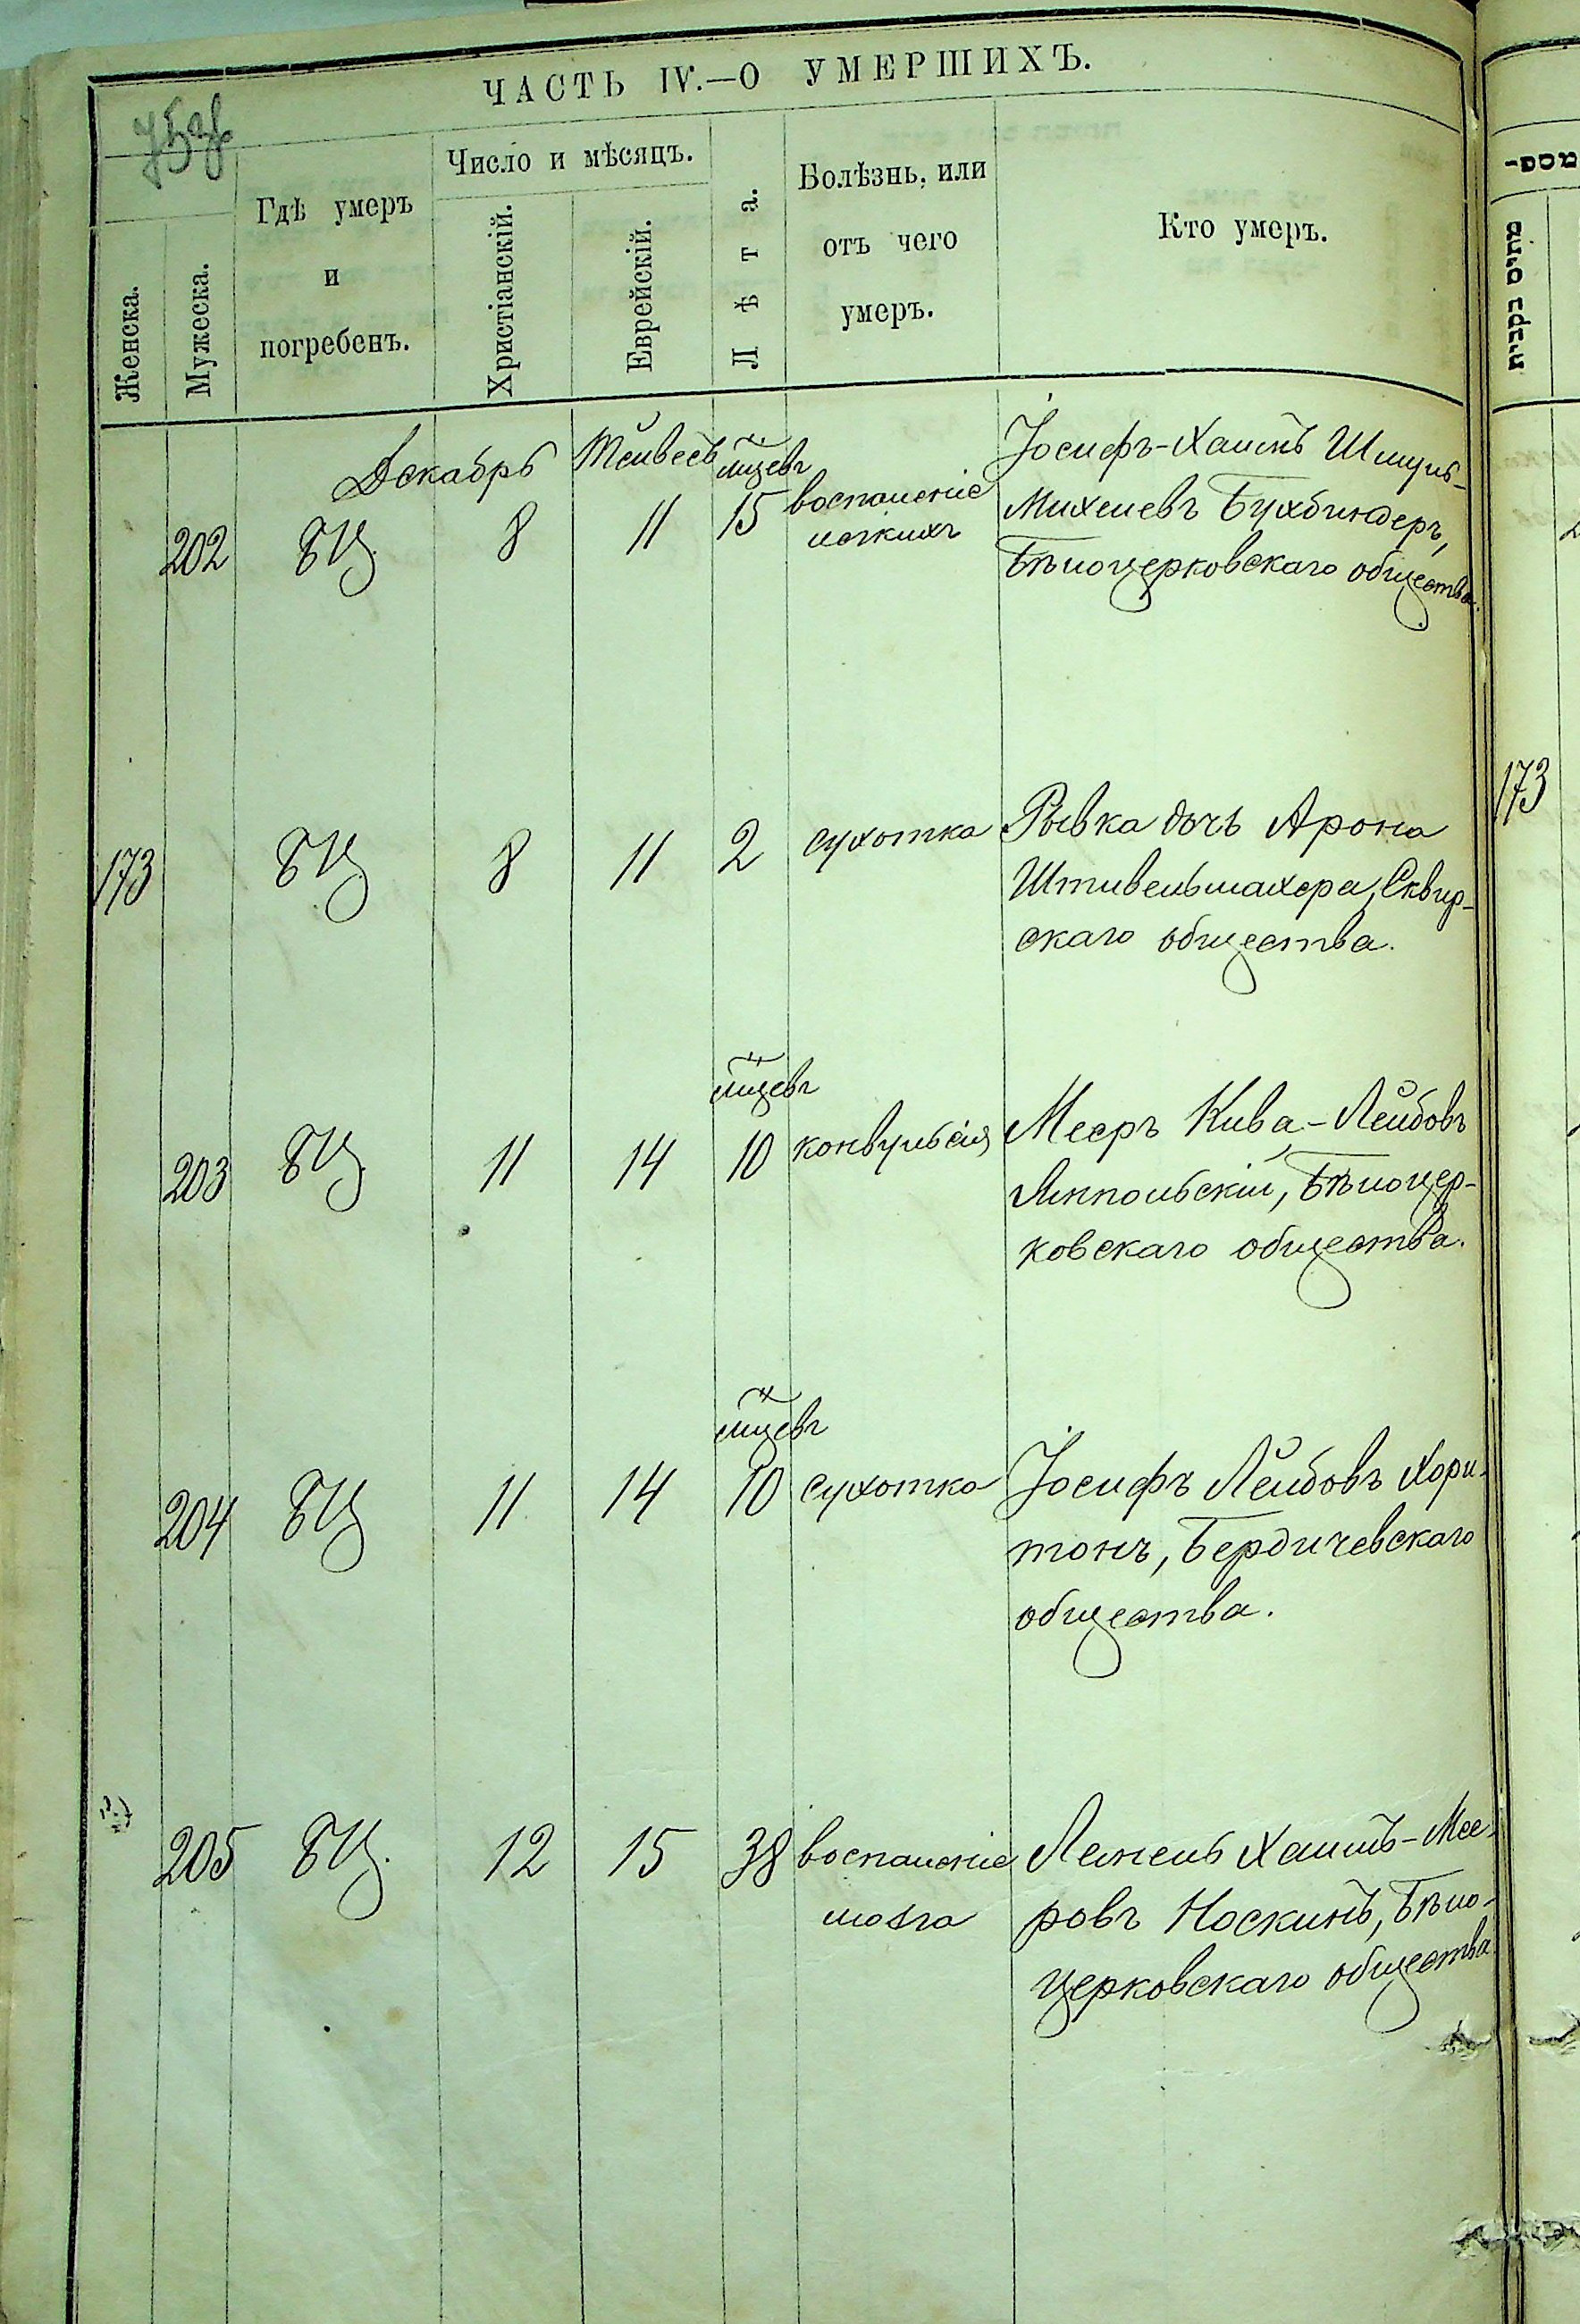 ЧАСТЬ IV.—О УМЕРШИХЪ.
Женска.
Мужеска.
Гдѣ умеръ
и
погребенъ.
Число и мѣсяцъ.
Христіанскій.
Еврейскій.
Лѣта.
Болѣзнь, или
отъ чего
умеръ.
Кто умеръ.
Декабрь Тейвесъ
202 БЦ. 8 11 мцевъ 15 воспаленіе
легкихъ
Іосифъ-Хаимъ Шмуль-
Михелевъ Бухбиндеръ,
Бѣлоцерковскаго общества.
173 БЦ 8 11 2 сухотка
Рывка дочь Арона
Штивельмахера, Сквир-
скаго общества.
203 БЦ. 11 14 мцевъ 10 конвульсія
Мееръ Кива-Лейбовъ
Ямпольскій, Бѣлоцер-
ковскаго общества.
204 БЦ 11 14 мцевъ 10 сухотка
Іосифъ Лейбовъ Хари-
тонъ, Бердичевскаго
общества.
205 БЦ. 12 15 38 воспаленіе
мозга
Хаимъ-Мее-
ровъ Носкинъ, Бѣло-
церковскаго общества
173